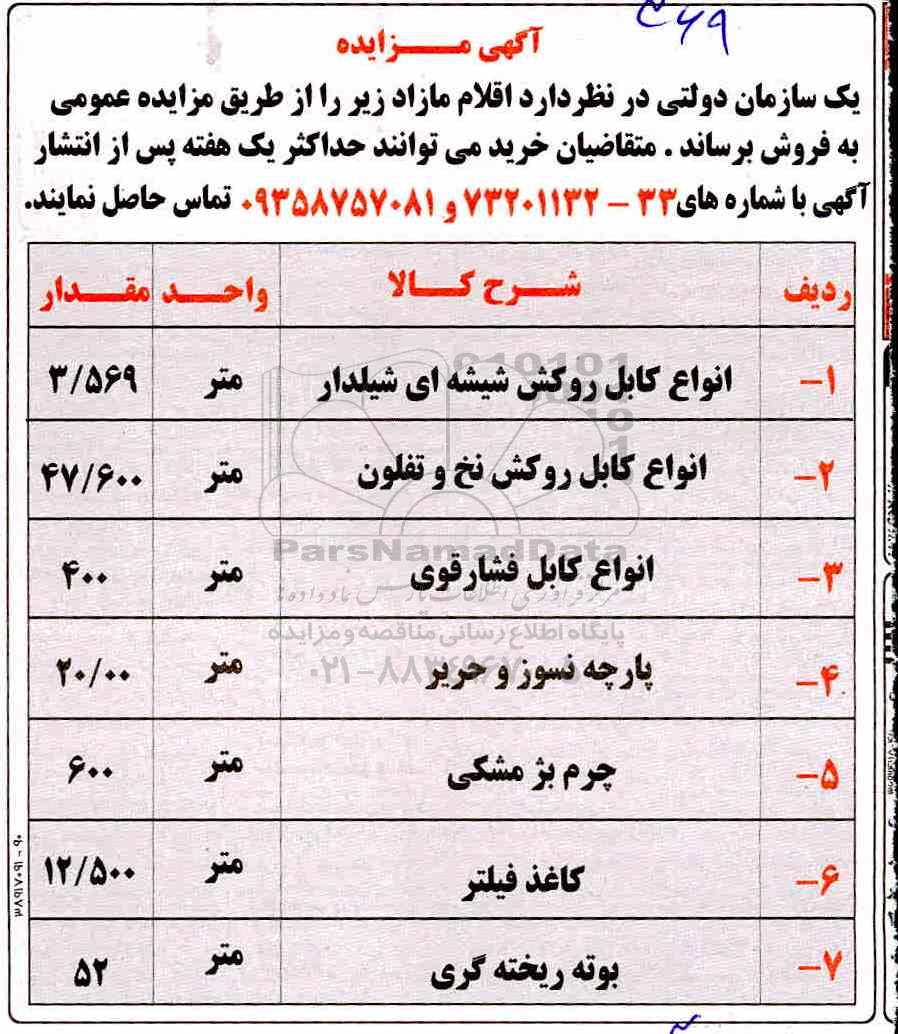 ۶۹
آگهی مـــزایده
یک سازمان دولتی در نظردارد اقلام مازاد زیر را از طریق مزایده عمومی
به فروش برساند . متقاضیان خرید می توانند حداکثر یک هفته پس از انتشار
آگهی با شماره های ۳۳ - ۷۳۲۰۱۱۳۲ و ۰۹۳۵۸۷۵۷۰۸۱ تماس حاصل نمایند.
ردیف شـــرح کـــالا واحـــد مقـــدار
۱- انواع کابل روکش شیشه ای شیلدار متر ۳/۵۶۹
۲- انواع کابل روکش نخ و تفلون متر ۴۷/۶۰۰
۳- انواع کابل فشارقوی متر ۴۰۰
۴- پارچه نسوز و حریر متر ۲۰/۰۰
۵- چرم بژ مشکی متر ۶۰۰
۶- کاغذ فیلتر متر ۱۲/۵۰۰
۷- بوته ریخته گری متر ۵۲
ParsNamadData
مرکز فرآوری اطلاعات پارس نماد داده ها
پایگاه اطلاع رسانی مناقصه و مزایده